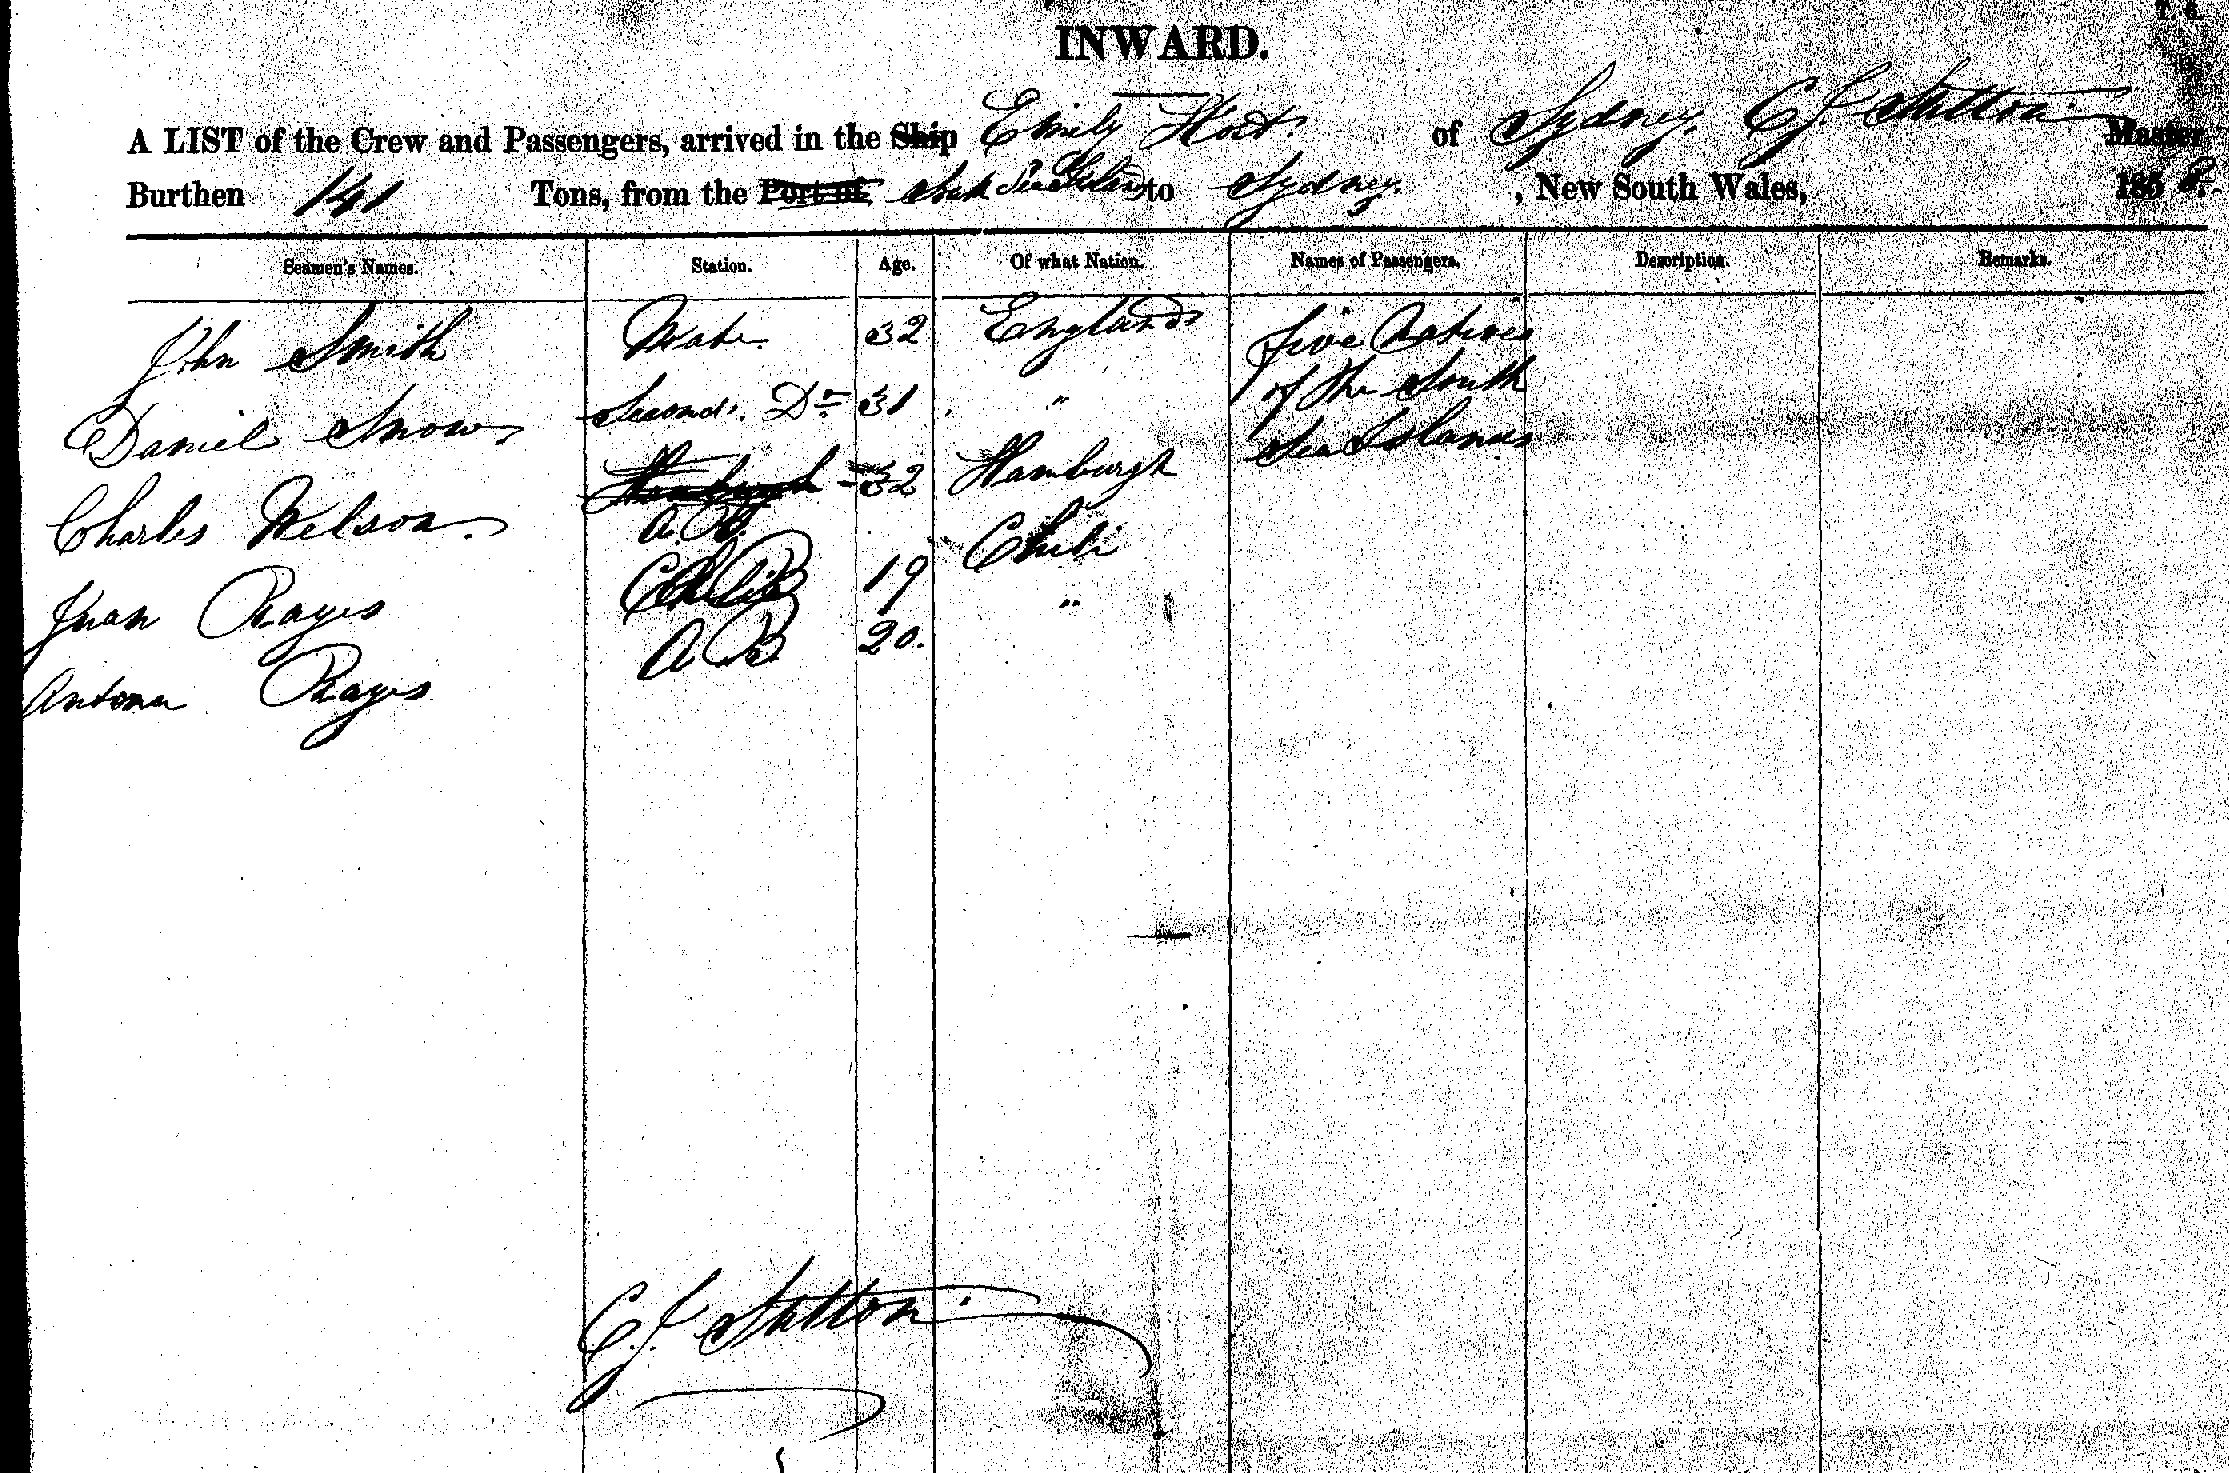 INWARD.
A LIST of the Crew and Passengers, arrived in the Ship Emily Hort. of Sydney. C J Stutton. Master
Burthen 141 Tons, from the Port of South Sea Islands to Sydney. , New South Wales, 185
Seamen's Names. Station. Age. Of what Nation. Names of Passengers. Description. Remarks.
John Smith Mate. 32 England Five Natives
of the South
Daniel Snow Second. Do 31 "
Sea Islands
Charles Nelson. Hamburgh 32 Hamburgh
A.B.
Juan Rayes 19 Chili
Antona Rayes A B 20. "
C. J. Stutton.